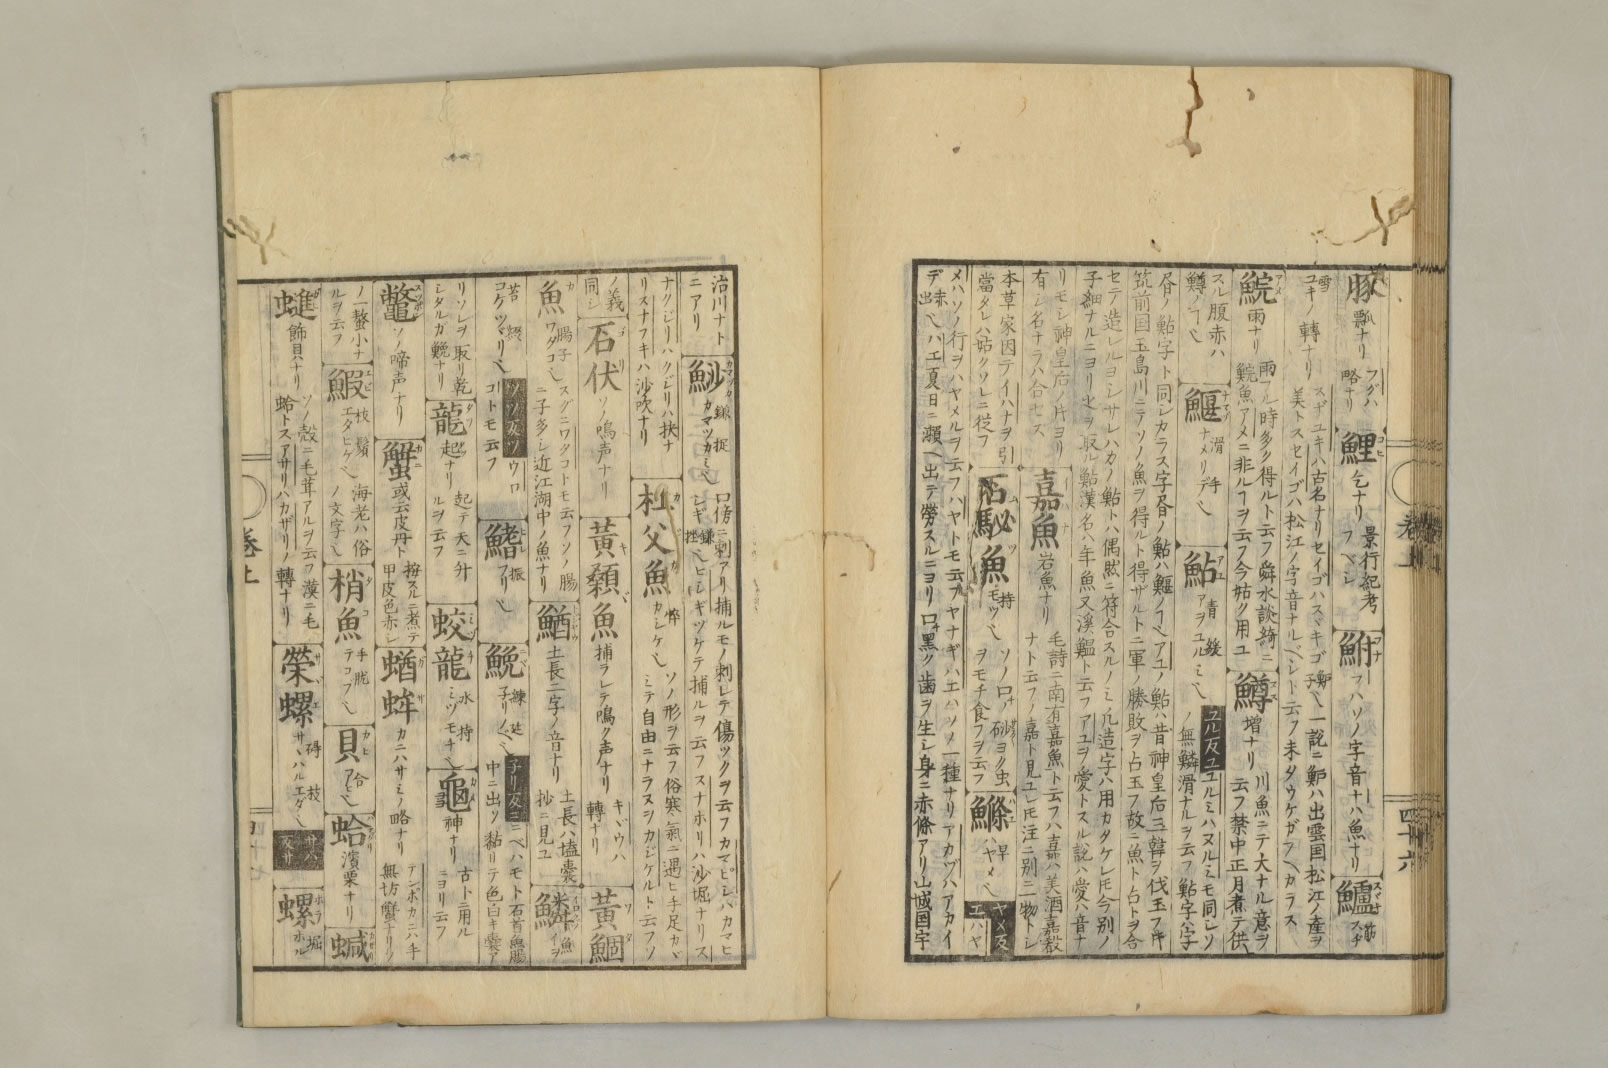 豚 瓢ナリ フグハ略ナリ 鯉 乞ナリ 景行紀考フベシ 鮒 フハソノ字音ナハ魚ナリ 鱸 筋 スヂ
雪 ユキノ轉ナリ スヂユキハ古名ナリセイゴハスマキゴ 一説ニ鱸ハ出雲国松江ノ産ヲ美トスセイゴハ松江ノ字音ナルベシト云フ未タウケガフベカラス
鯇 雨ナリ 雨フル時多ク得ルト云フ舜水談綺ニ鯇魚アメニ非ルヿヲ云フ今姑ク用ユ 鱒 増ナリ 川魚ニテ大ナル意ヲ云フ禁中正月煮テ供
スル腹赤ハ鱒ノヿ也 鰋 滑 手 ナメリデ也 鮎 青 緩 アヲユルミ也 ユル反ユ ユルミハヌルミモ同シソノ無鱗滑ナルヲ云フ鮎字八字
昼ノ鮎字ト同シカラス字昼ノ鮎ハ鰋ノヿ也アユノ鮎ハ昔神皇后三韓ヲ伐玉フキ筑前国玉島川ニテソノ魚ヲ得ルト得サルトニ軍ノ勝敗ヲ占玉フ故ニ魚ト占トヲ合
セテ造レルヨシサレハカノ鮎トハ偶然ニ符合スルノミ凡造字ハ用カタケレモ今別ノ子細ナルニヨリ也ヲ取ル鮎漢名ハ年魚又渓鰮ト云フアユヲ愛トスル説ハ愛ハ音ナ
リモシ神皇后ノ片ヨリ有シ名ナラハ合セズ 嘉魚 岩魚ナリ 毛詩ニ南有嘉魚ト云フハ嘉ハ美酒嘉殽ナト云フノ嘉ト見ユレモ注ニ別ニ一物トシ
本草家因テイハナヲ引當タレハ姑クソレニ從フ 石鮅魚 持 モツ也 ソノ口ヲモチ食フヲ云フ 鰷 早 ハヤメ也 ヤメ反エ ハヤ
メハソノ行ヲハヤメルヲ云フハヤトモ云フヤナギハエハソノ一種ナリアカヅハアカイデ也ハエ夏日ニ瀬ヘ出テ勞スルニヨリ口黒ク歯ヲ生シ身ニ赤條アリ山城国宇
巻上
四十六
治川ナトニアリ 鯋 鎌捉 カマツカミ也 口傍ニ刺アリ捕ルモノ刺レテ傷ツクヲ云フカマビシハカマヒシギ也ヒシギツケテ捕ルヲ云フスナホリハ沙堀ナリス
ナクジリハクジリハ抉ナリスナフキハ沙吹ナリ 杜父魚 悴 カシケ也 ソノ形ヲ云フ俗寒氣ニ遇ヒ手足カヾミテ自由ニナラヌヲカジケルト云フソ
ノ義同シ 石伏 ソノ鳴声ナリ 黄顙魚 捕ラレテ鳴ク声ナリ キヾウハ轉ナリ 黄鯝
魚 腸子 ワタコ也 スグニワタコトモ云フソノ腸ニ子多シ近江湖中ノ魚ナリ 鰌 土長ニ字ノ音ナリ 土長ハ壒嚢抄ニ見ユ 鱗 魚 イヲ
苔 綴 コケツヽマリ也 ツヽ反ツ ウロコトモ云フ 鰭 振 フリ也 鮸 練 延 子リノベ也 子リ反ニ ニベハモト石首魚膓中ニ出ツ黏リテ色白キ嚢ア
リソレヲ取リ乾シタルガ鮸ナリ 龍 起ナリ 起テ天ニ升ルヲ云フ 蛟龍 水持 ミヅモチ也 龜 神ナリ 古ト二用ルニヨリ云フ
鼈 ソノ啼声ナリ 蟹 或云皮丹ト 按スルニ煮テ甲皮色赤シ 蝤蛑 カニハサミノ略ナリ テンボカニハ手無坊蟹ナリソ
ノ一螯小ナルヲ云フ 鰕 枝鬚 エダヒゲ也 海老ハ俗ノ文字也 梢魚 手脱 テコブ也 貝 合 アヒ也 蛤 濱栗ナリ 蝛
飾貝ナリ ソノ殻ニ毛茸アルヲ云フ漢ニ毛蛤トスアサリハカザリノ轉ナリ 榮螺 碍 枝 サハルエダ也 サハ反サ 螺 堀 ホル
巻上
四十七